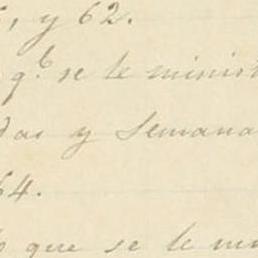 , y 62.
q.e se le minist
das y Semana
64.
que se le mi